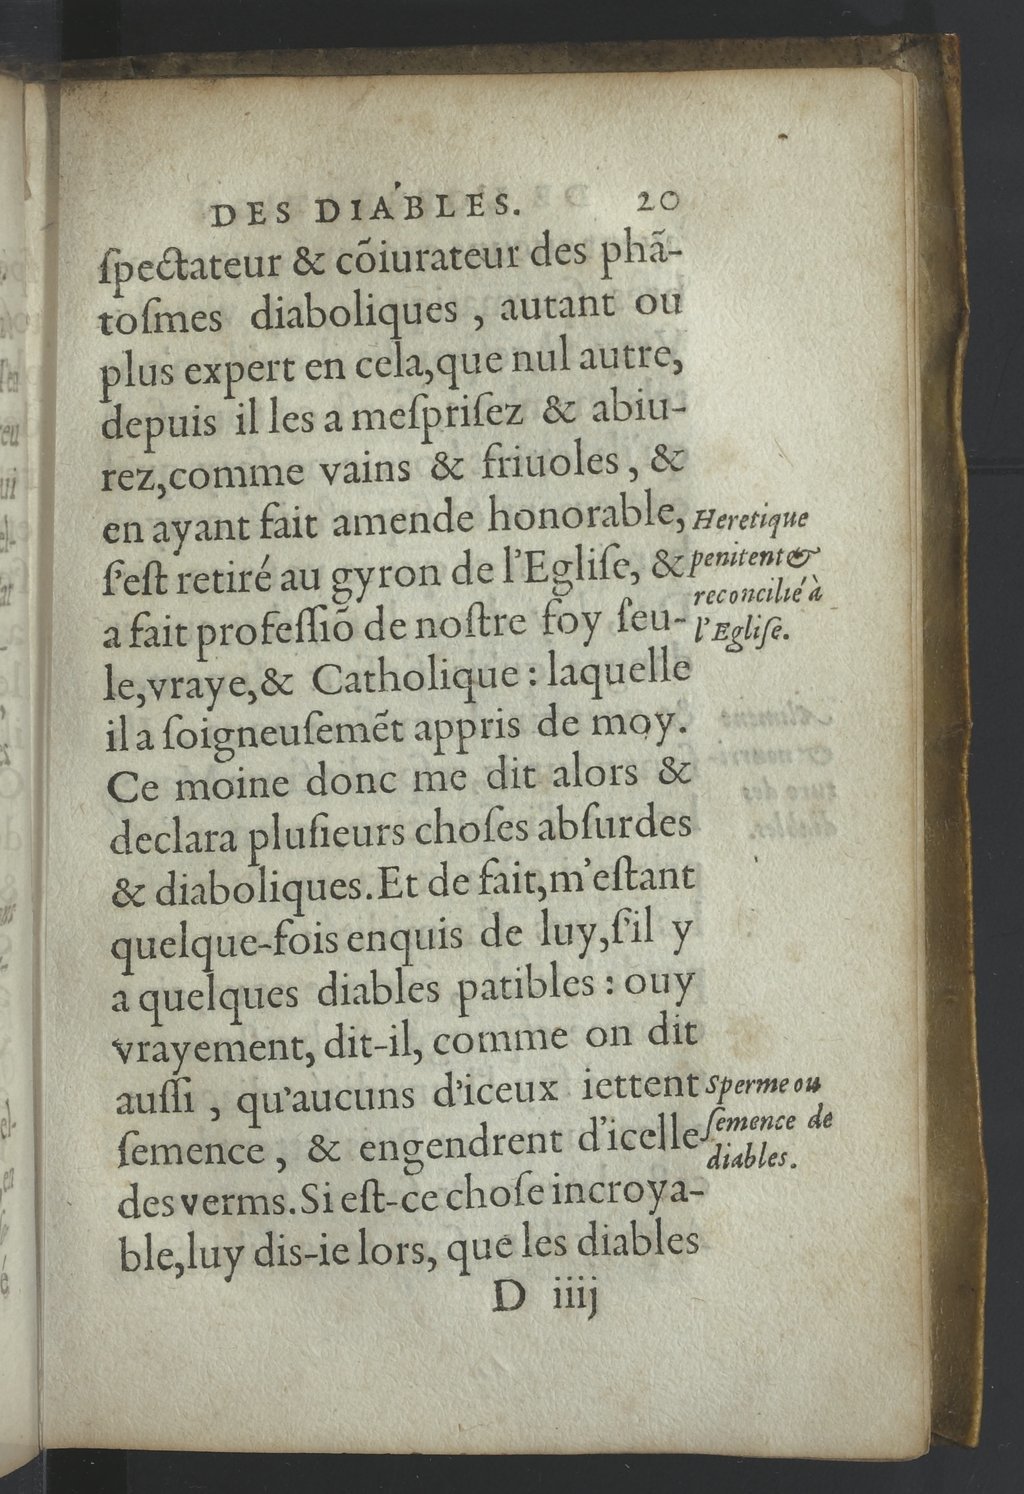 DES DIABLES. 20
ſpectateur & cõiurateur des phã-
toſmes diaboliques , autant ou
plus expert en cela,que nul autre,
depuis il les a meſpriſez & abiu-
rez,comme vains & friuoles , &
en ayant fait amende honorable,
ſ'eſt retiré au gyron de l'Egliſe, &
a fait profeſſiõ de noſtre foy ſeu-
le,vraye,& Catholique : laquelle
il a ſoigneuſemẽt appris de moy.
Ce moine donc me dit alors &
declara pluſieurs choſes abſurdes
& diaboliques.Et de fait,m'eſtant
quelque-fois enquis de luy,ſ'il y
a quelques diables patibles : ouy
vrayement, dit-il, comme on dit
auſſi , qu'aucuns d'iceux iettent
ſemence , & engendrent d'icelle
des verms.Si eſt-ce choſe incroya-
ble,luy dis-ie lors, que les diables
D iiij
Heretique
penitent &
reconcilié à
l'Egliſe.
Sperme ou
ſemence de
diables.